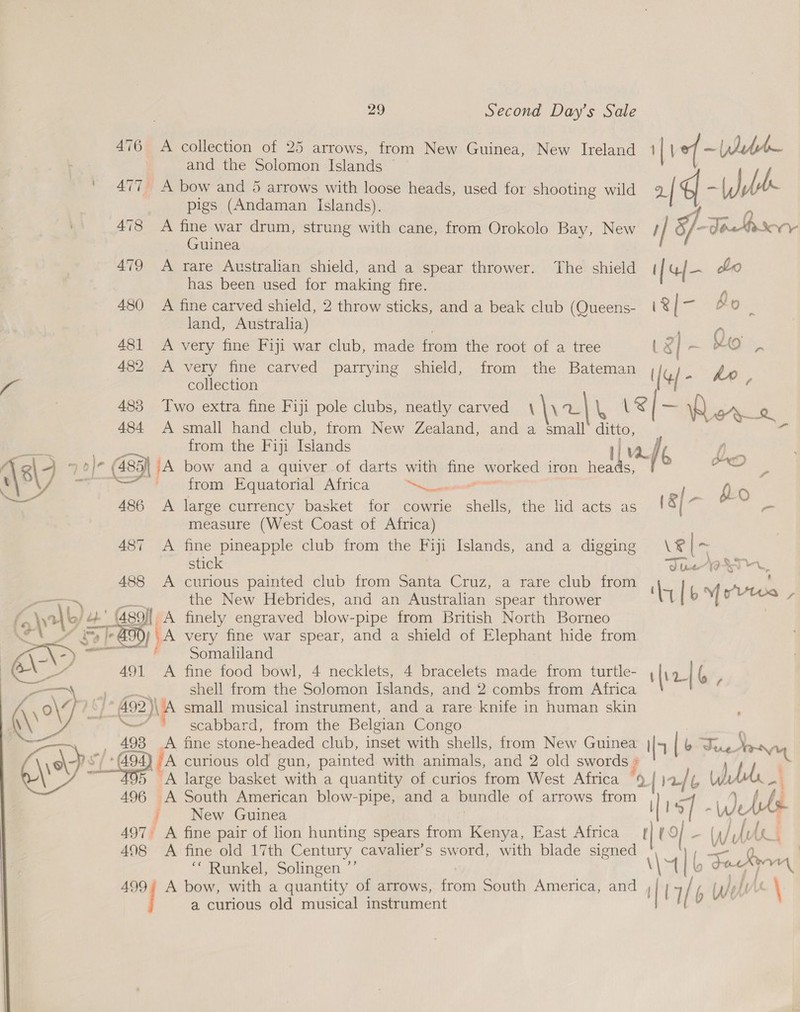 29 Second Day's Sale
476 A collection of 25 arrows, from New Guinea, New Ireland
and the Solomon Islands
477 A bow and 5 arrows with loose heads, used for shooting wild
pigs (Andaman Islands).
478 A fine war drum, strung with cane, from Orokolo Bay, New
Guinea
479 A rare Australian shield, and a spear thrower. The shield
has been used for making fire.
480 A fine carved shield, 2 throw sticks, and a beak club (Queens-
land, Australia)
481 A very fine Fiji war club, made from the root of a tree
482 A very fine carved parrying shield, from the Bateman
collection
483 Two extra fine Fiji pole clubs, neatly carved
484 A small hand club, from New Zealand, and a small ditto,
from the Fiji Islands
485 A bow and a quiver of darts with fine worked iron heads,
from Equatorial Africa
486 A large currency basket for cowrie shells, the lid acts as
measure (West Coast of Africa)
487 A fine pineapple club from the Fiji Islands, and a digging
stick
488 A curious painted club from Santa Cruz, a rare club from
the New Hebrides, and an Australian spear thrower
489 A finely engraved blow-pipe from British North Borneo
490 A very fine war spear, and a shield of Elephant hide from
Somaliland
491 A fine food bowl, 4 necklets, 4 bracelets made from turtle-
shell from the Solomon Islands, and 2 combs from Africa
492 A small musical instrument, and a rare knife in human skin
scabbard, from the Belgian Congo
493 A fine stone-headed club, inset with shells, from New Guinea
494 A curious old gun, painted with animals, and 2 old swords
495 A large basket with a quantity of curios from West Africa
496 A South American blow-pipe, and a bundle of arrows from
New Guinea
497 A fine pair of lion hunting spears from Kenya, East Africa
498 A fine old 17th Century cavalier's sword, with blade signed
“Runkel, Solingen”
499 A bow, with a quantity of arrows, from South America, and
a curious old musical instrument